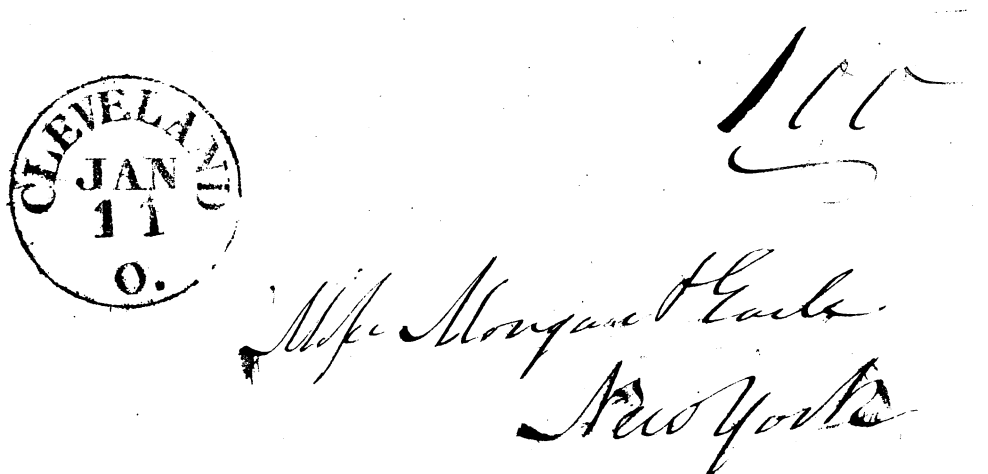 CLEVELAND
JAN
11
O.
100
Messr Morgan & Earle
New York